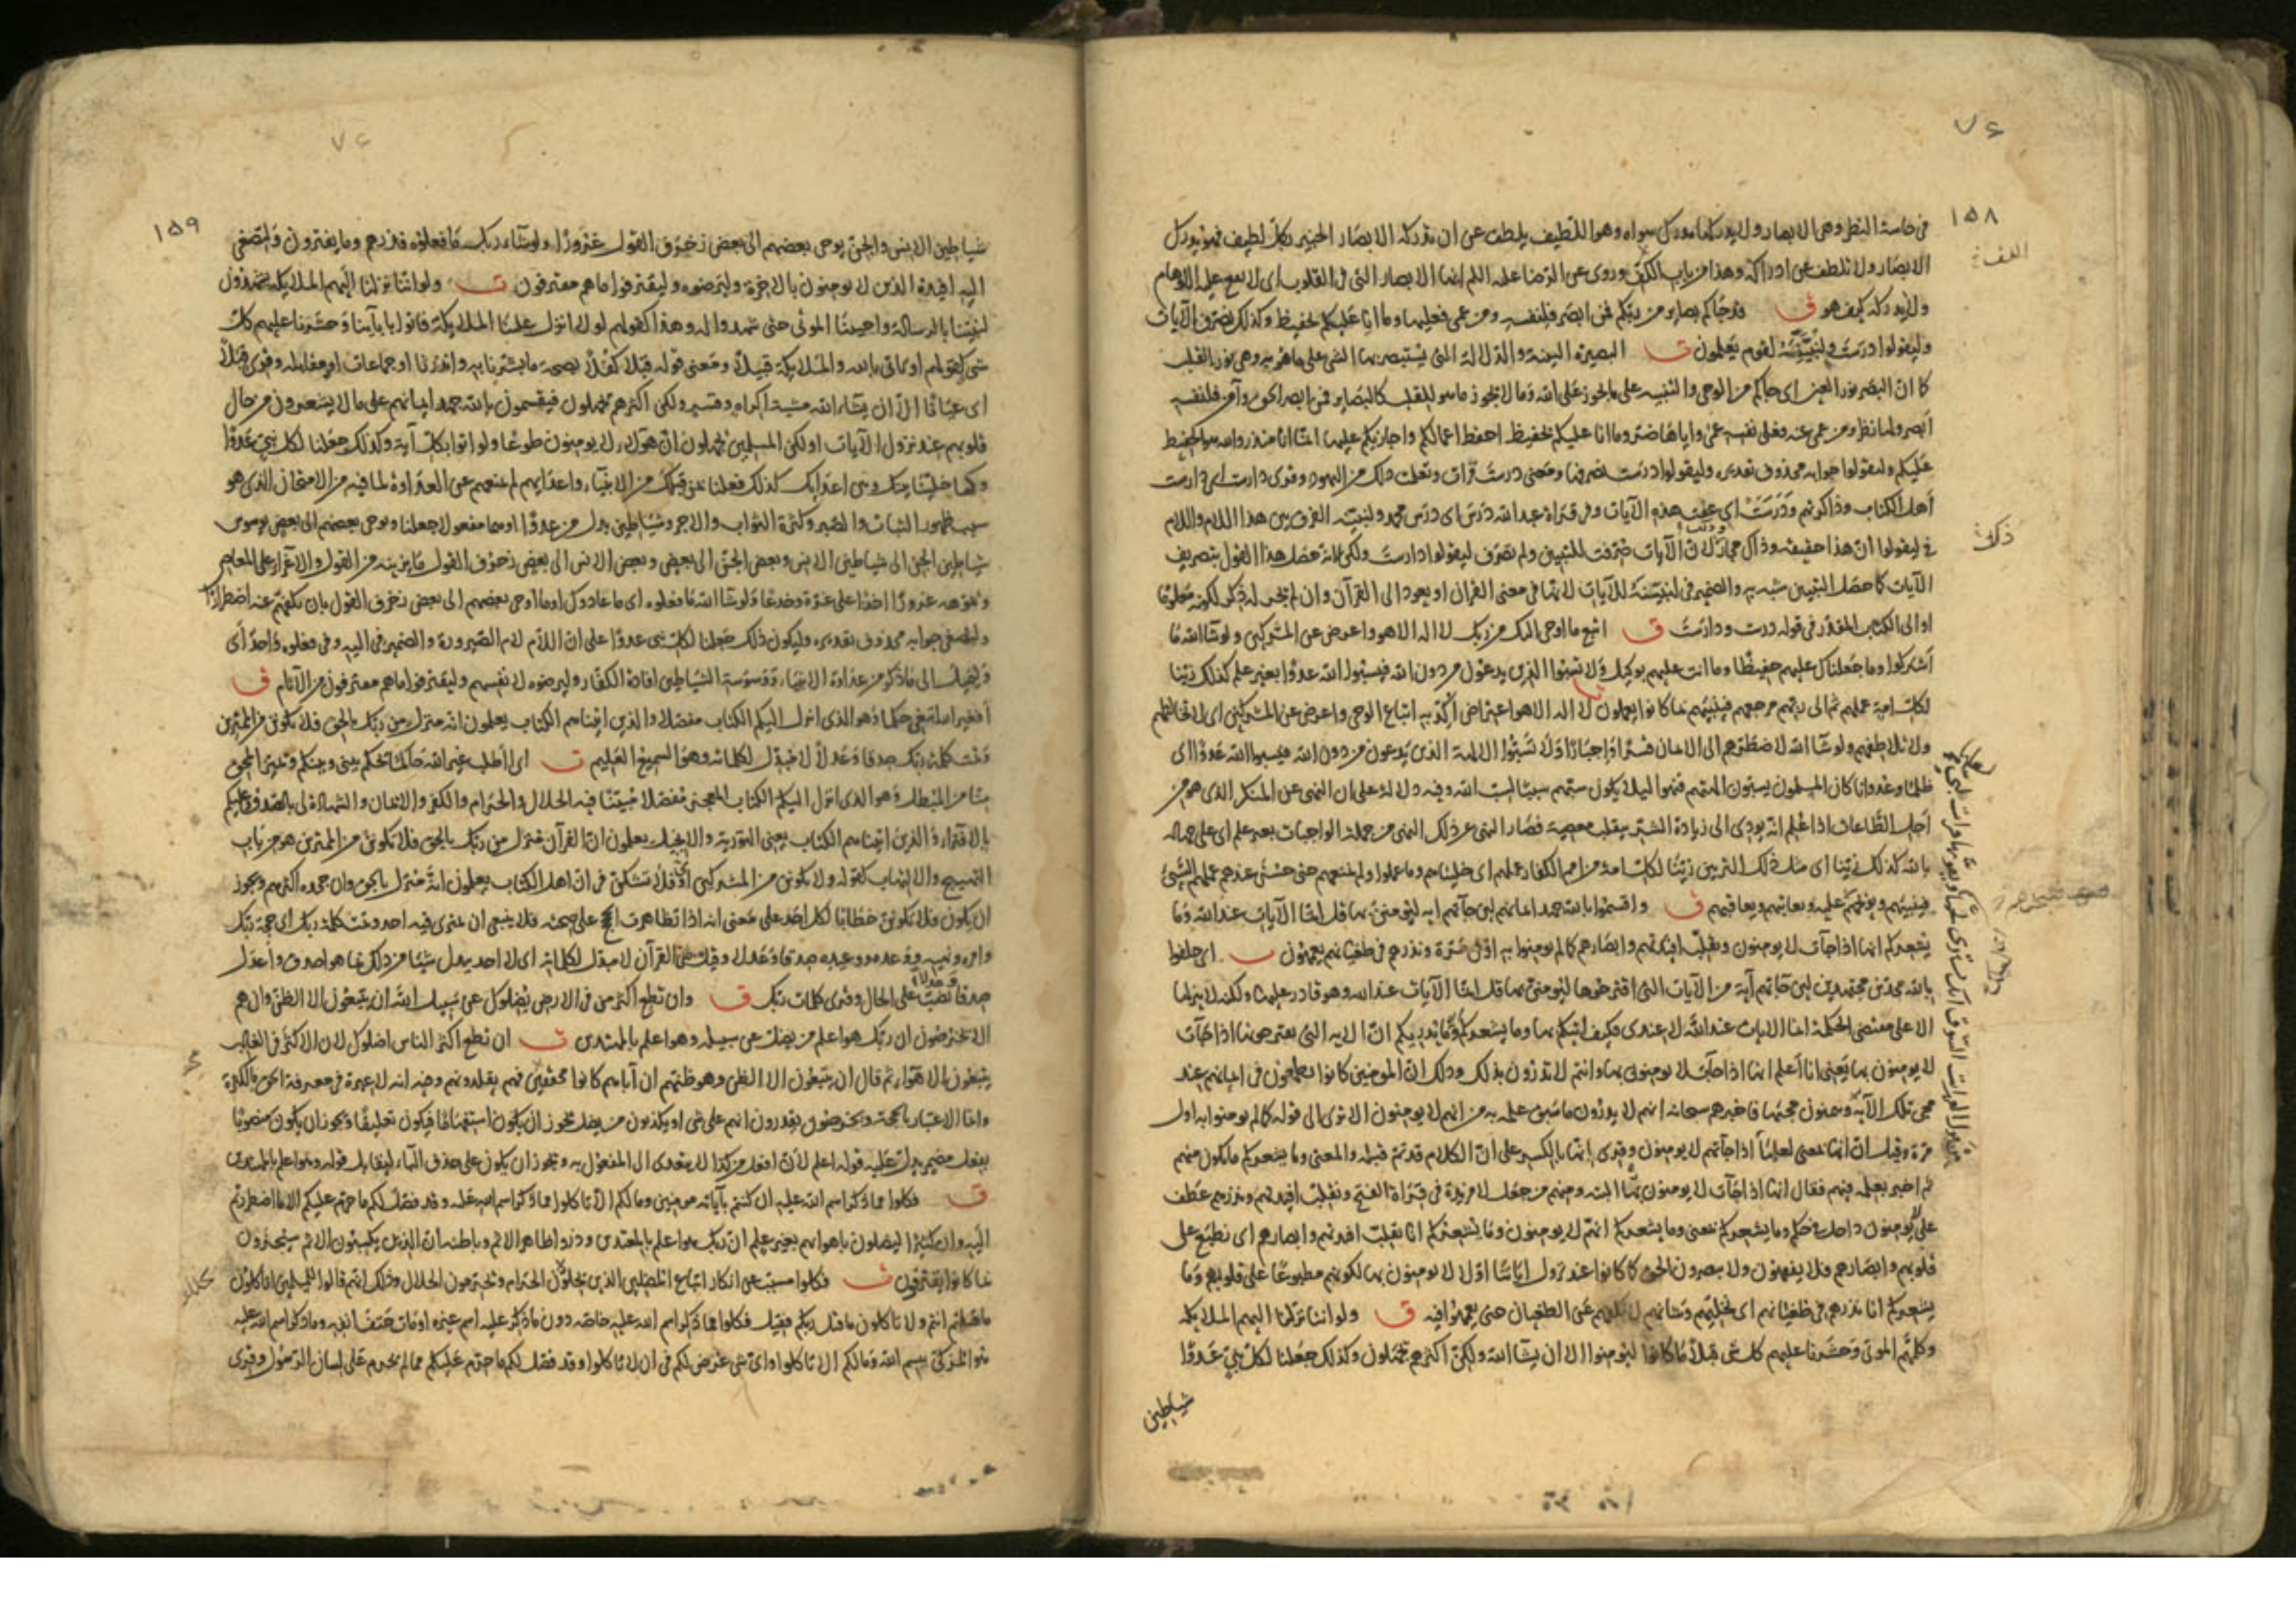 ٧٤
١٥٨
في حاسة النظر وهي الابصار ولا يدركها مدرك سواه وهو اللطيف يلطف عن ان تدركه الابصار الخبير بكل لطيف فهو يدرك
الابصار ولا تلطف عن ادراكه وهذا من باب اللف وروى عن الرضا عليه السلم انها الابصار التي في القلوب اى لا يقع عليه الاوهام
ولا يدركه كيف هو ق قد جاكم بصاير من ربكم فمن ابصر فلنفسه ومن عمى فعليها وما انا عليكم بحفيظ وكذلك نصرف الآيات
وليقولوا درست ولنبينه لقوم يعلمون ت البصيرة البينة والدلالة التي يستبصر بها الشى على ما هو به وهي نور القلب
كما ان البصر نور العين اى جاكم من الوحى والتنبيه على ما يجوز على الله وما لا يجوز ما هو للقلب كالبصاير فمن ابصر الحق وآمن فلنفسه
أبصر ولها نظر ومن عمى عنه فعلى نفسه عمى واياها ضر وما انا عليكم بحفيظ احفظ اعمالكم واجازيكم عليها انما انا منذر والله هو الحفيظ
عليكم وليقولوا جوابه محذوف تقديره وليقولوا درست نصرفها ومعنى درست قرات وتعلمت ذلك من اليهود وقرى دارست اى دارست
أهل الكتاب وذاكرتهم ودرست اى عفت هذه الآيات وفي قراة عبد الله درس اى درس محمد ولنبينه الفرق بين هذا اللام واللام
في ليقولوا ان هذا حقيقة وذاك مجاز لان الآيات صرفت للتبيين ولم تصرف ليقولوا دارست ولكن لانه حصل هذا القول بتصريف
الآيات كما حصل التبيين شبه به والضمير في لنبينه للآيات لانها في معنى القران او يعود الى القرآن وان لم يجر له ذكر لكونه معلوما
او الى الكتاب المقدر في قوله درست ودارست ق اتبع ما اوحى اليك من ربك لا اله الا هو واعرض عن المشركين ولو شا الله ما
أشركوا وما جعلناك عليهم حفيظا وما انت عليهم بوكيل ولا تسبوا الذين يدعون من دون الله فيسبوا الله عدوا بغير علم كذلك زينا
لكل امة عملهم ثم الى ربهم مرجعهم فينبيهم بما كانوا يعملون لا اله الا هو اعتراض أكد به اتباع الوحى واعرض عن المشركين اى لا تخالطهم
ولا تلاطفهم ولو شا الله لاضطرهم الى الايمان قسرا واجبارا ولا تسبوا الالهة الذين يدعون من دون الله فيسبوا الله عدوا اى
ظلما وعدوانا كان المسلمون يسبون آلهتهم فنهوا ليلا يكون سبهم سببا لسب الله وفيه دلالة على ان النهى عن المنكر الذى هو من
أجل الطاعات اذا علم انه يودى الى زيادة الشر ينقلب معصية فصار النهى عن ذلك النهى من جملة الواجبات بغير علم اى على جهالة
بالله كذلك زينا اى مثل ذلك التزيين زينا لكل امة من امم الكفار عملهم اى خليناهم وما عملوا ولم نمنعهم حتى حسن عندهم عملهم السيئ
فينبيهم ويوبخهم عليه ويعاتبهم ويعاقبهم ق واقسموا بالله جهد ايمانهم لين جآتهم ايه ليؤمنن بها قل انما الآيات عند الله وما
يشعركم انها اذا جآت لا يومنون ونقلب افيدتهم وابصارهم كما لم يومنوا به اول مرة ونذرهم في طغيانهم يعمهون ت اى حلفوا
بالله مجدين مجتهدين لين جآتهم آية من الآيات التي اقترحوها ليؤمنن بها قل انما الآيات عند الله وهو قادر عليها ولكنه لا ينزلها
الا على مقتضى الحكمة انما الايات عند الله لا عندى فكيف اتيكم بها وما يشعركم وما يدريكم ان الايه التي يقترحونها اذا جآت
لا يومنون بها يعنى انا أعلم انها اذا جآت لا يومنون بها وانتم لا تدرون بذلك وذلك ان المومنين كانوا يطمعون في ايمانهم عند
مجى تلك الآية ويتمنون مجيها فاخبرهم سبحانه انهم لا يدرون ما سبق علمه به من انهم لا يومنون الا ترى الى قوله كما لم يومنوا به اول
مرة وقيل ان انها بمعنى لعلها اذا جآتهم لا يومنون وقرى انها بالكسر على ان الكلام قد تم قبله والمعنى وما يشعركم ما يكون منهم
ثم اخبر بعلمه فيهم فقال انها اذا جآت لا يومنون بها البتة ومنهم من جعل لا مزيدة في قراة الفتح ونقلب افيدتهم ونذرهم عطف
على لا يومنون داخل في حكم وما يشعركم بمعنى وما يشعركم انهم لا يومنون وما يشعركم انا نقلب افيدتهم وابصارهم اى نطبع على
قلوبهم وابصارهم فلا يفقهون ولا يبصرون الحق كما كانوا عند نزول اياتنا اولا لا يومنون بها لكونهم مطبوعا على قلوبهم وما
يشعركم انا نذرهم في طغيانهم اى نخليهم وشانهم لا نكفهم عن الطغيان حتى يعمهوا فيه ق ولو اننا نزلنا اليهم الملايكه
وكلمهم الموتى وحشرنا عليهم كل شى قبلا ما كانوا ليؤمنوا الا ان يشآ الله ولكن اكثرهم يجهلون وكذلك جعلنا لكل نبي عدوا
شياطين
٧٤
١٥٩
شياطين الانس والجن يوحى بعضهم الى بعض زخرف القول غرورا ولو شاء ربك ما فعلوه فذرهم وما يفترون ولتصغى
اليه افيدة الذين لا يومنون بالاخرة وليرضوه وليقترفوا ما هم مقترفون ت ولو اننا نزلنا اليهم الملايكة
لنبيتنا بالرسالة واحيينا الموتى حتى شهدوا له وهذا كقولهم لولا انزل علينا الملايكة فاتوا بابآينا وحشرنا عليهم كل
شى كقولهم او تاتى بالله والملايكة قبيلا ومعنى قوله قبلا كفلا بصحة ما بشرنا به وانذرنا او جماعات او مقابلة وقرى قبلا
اى عيانا الا أن يشاء الله مشية اكراه وقسر ولكن أكثرهم يجهلون فيقسمون بالله جهد ايمانهم على ما لا يشعرون من حال
قلوبهم عند نزول الآيات او لكن المسلمين يجهلون ان هولاء لا يومنون طوعا ولو اتوا بكل آية وكذلك جعلنا لكل نبي عدوا
وكما خلينا بينك وبين اعدايك كذلك فعلنا بمن قبلك من الانبياء واعدايهم لم نمنعهم عن العداوة لما فيه من الامتحان الذى هو
سبب ظهور الثبات والصبر وكثرة الثواب والاجر وشياطين بدل من عدوا او هما مفعولا جعلنا ويوحى بعضهم الى بعض يوسوس
شياطين الجن الى شياطين الانس وبعض الجن الى بعض وبعض الانس الى بعض زخرف القول ما يزينه من القول والاغراء على المعاصى
ويموهه غرورا اخذا على غرة وخدعا ولو شا الله ما فعلوه اى ما عادوك او ما اوحى بعضهم الى بعض زخرف القول بان يكفهم عنه اضطرارا
ولتصغى جوابه محذوف تقديره وليكون ذلك جعلنا لكل نبى عدوا على ان اللام لام الصيرورة والضمير في اليه وفي فعلوه واحد أى
ولتميل الى ما ذكر من عداوة الانبياء ووسوسة الشياطين افيدة الكفار وليرضوه لانفسهم وليقترفوا ما هم مقترفون من الآثام ق
أفغير الله ابتغى حكما وهو الذى انزل اليكم الكتاب مفصلا والذين اتيناهم الكتاب يعلمون انه منزل من ربك بالحق فلا تكونن من الممترين
وتمت كلمة ربك صدقا وعدلا لا مبدل لكلماته وهو السميع العليم ت اى اأطلب غير الله حاكما يحكم بينى وبينكم ويميز المحق
منا من المبطل وهو الذى انزل اليكم الكتاب المعجز مفصلا مبينا فيه الحلال والحرام والكفر والايمان والشهادة لى بالصدق وعليكم
بالافتراء والذين اتيناهم الكتاب يعنى التورية والانجيل يعلمون ان القرآن منزل من ربك بالحق فلا تكونن من الممترين هو من باب
التهييج والالهاب كقوله ولا تكونن من المشركين او فلا تشكن في ان اهل الكتاب يعلمون انه منزل بالحق وان جحده اكثرهم ويجوز
ان يكون فلا تكونن خطابا لكل احد على معنى انه اذا تظاهرت الحجج على صحته فلا ينبغى ان يمترى فيه احد وتمت كلمة ربك اى حجة ربك
وامره ونهيه ووعده ووعيده صدقا وعدلا وقيل هى القرآن لا مبدل لكلماته اى لا احد يبدل شيا من ذلك بما هو اصدق وأعدل
صدقا وعدلا نصب على الحال وقرى كلمات ربك ق وان تطع أكثر من في الارض يضلوك عن سبيل الله ان يتبعون الا الظن وان هم
الا يخرصون ان ربك هو اعلم من يضل عن سبيله وهو اعلم بالمهتدين ت ان تطع اكثر الناس اضلوك لان الاكثر في الغالب
يتبعون الاهواء ثم قال ان يتبعون الا الظن وهو ظنهم ان آباءهم كانوا محقين فهم يقلدونهم وفيه انه لا عبرة في معرفة الحق بالكثرة
وانما الاعتبار بالحجة ويخرصون يقدرون انهم على شى او يكذبون من يضل يجوز ان يكون استفهاما فيكون تعليقا ويجوز ان يكون منصوبا
بفعل مضمر يدل عليه قوله اعلم لأن افعل من كذا لا يتعدى الى المفعول به ويجوز ان يكون على حذف الباء ليقابل قوله وهو اعلم بالمهتدين
ق فكلوا مما ذكر اسم الله عليه ان كنتم بآياته مومنين وما لكم الا تاكلوا مما ذكر اسم الله عليه وقد فصل لكم ما حرم عليكم الا ما اضطررتم
اليه وان كثيرا ليضلون باهوائهم بغير علم ان ربك هو اعلم بالمعتدين وذروا ظاهر الاثم وباطنه ان الذين يكسبون الاثم سيجزون
بما كانوا يقترفون ت فكلوا مسبب عن انكار اتباع المضلين الذين يحلون الحرام ويحرمون الحلال وذلك انهم قالوا للمسلمين اتاكلون
ما قتلتم انتم ولا تاكلون ما قتل ربكم فقيل فكلوا مما ذكر اسم الله عليه خاصة دون ما ذكر عليه اسم غيره او مات حتف انفه وما ذكر اسم الله عليه
هو المذكى ببسم الله وما لكم الا تاكلوا واى شى غرض لكم في ان لا تاكلوا وقد فصل لكم ما حرم عليكم مما لم يحرم على لسان الرسول وقرى